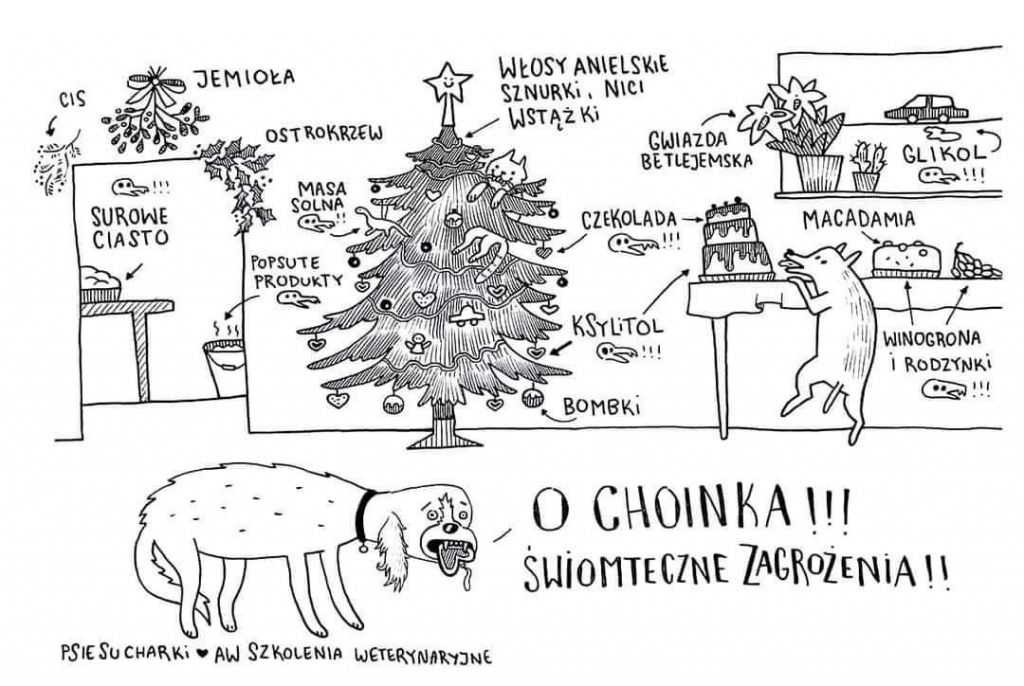 CIS
JEMIOŁA
OSTROKRZEW
!!!
SUROWE
CIASTO
POPSUTE
PRODUKTY
MASA
SOLNA
!!
WŁOSY ANIELSKIE
SZNURKI, NICI
WSTĄŻKI
GWIAZDA
BETLEJEMSKA
GLIKOL
!!!
CZEKOLADA
!!!
MACADAMIA
KSYLITOL
!!!
WINOGRONA
I RODZYNKI
!!!
BOMBKI
O CHOINKA!!!
ŚWIOMTECZNE ZAGROŻENIA!!
PSIESUCHARKI ♥ AW SZKOLENIA WETERYNARYJNE